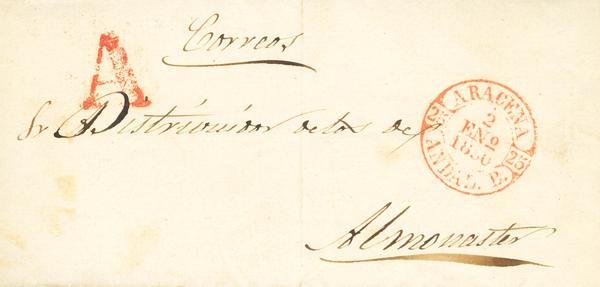 Correos
A
Sr Distribuidor de los de
Almonaster
ARACENA
2
ENº
1850
ANDAL. B.
25 25